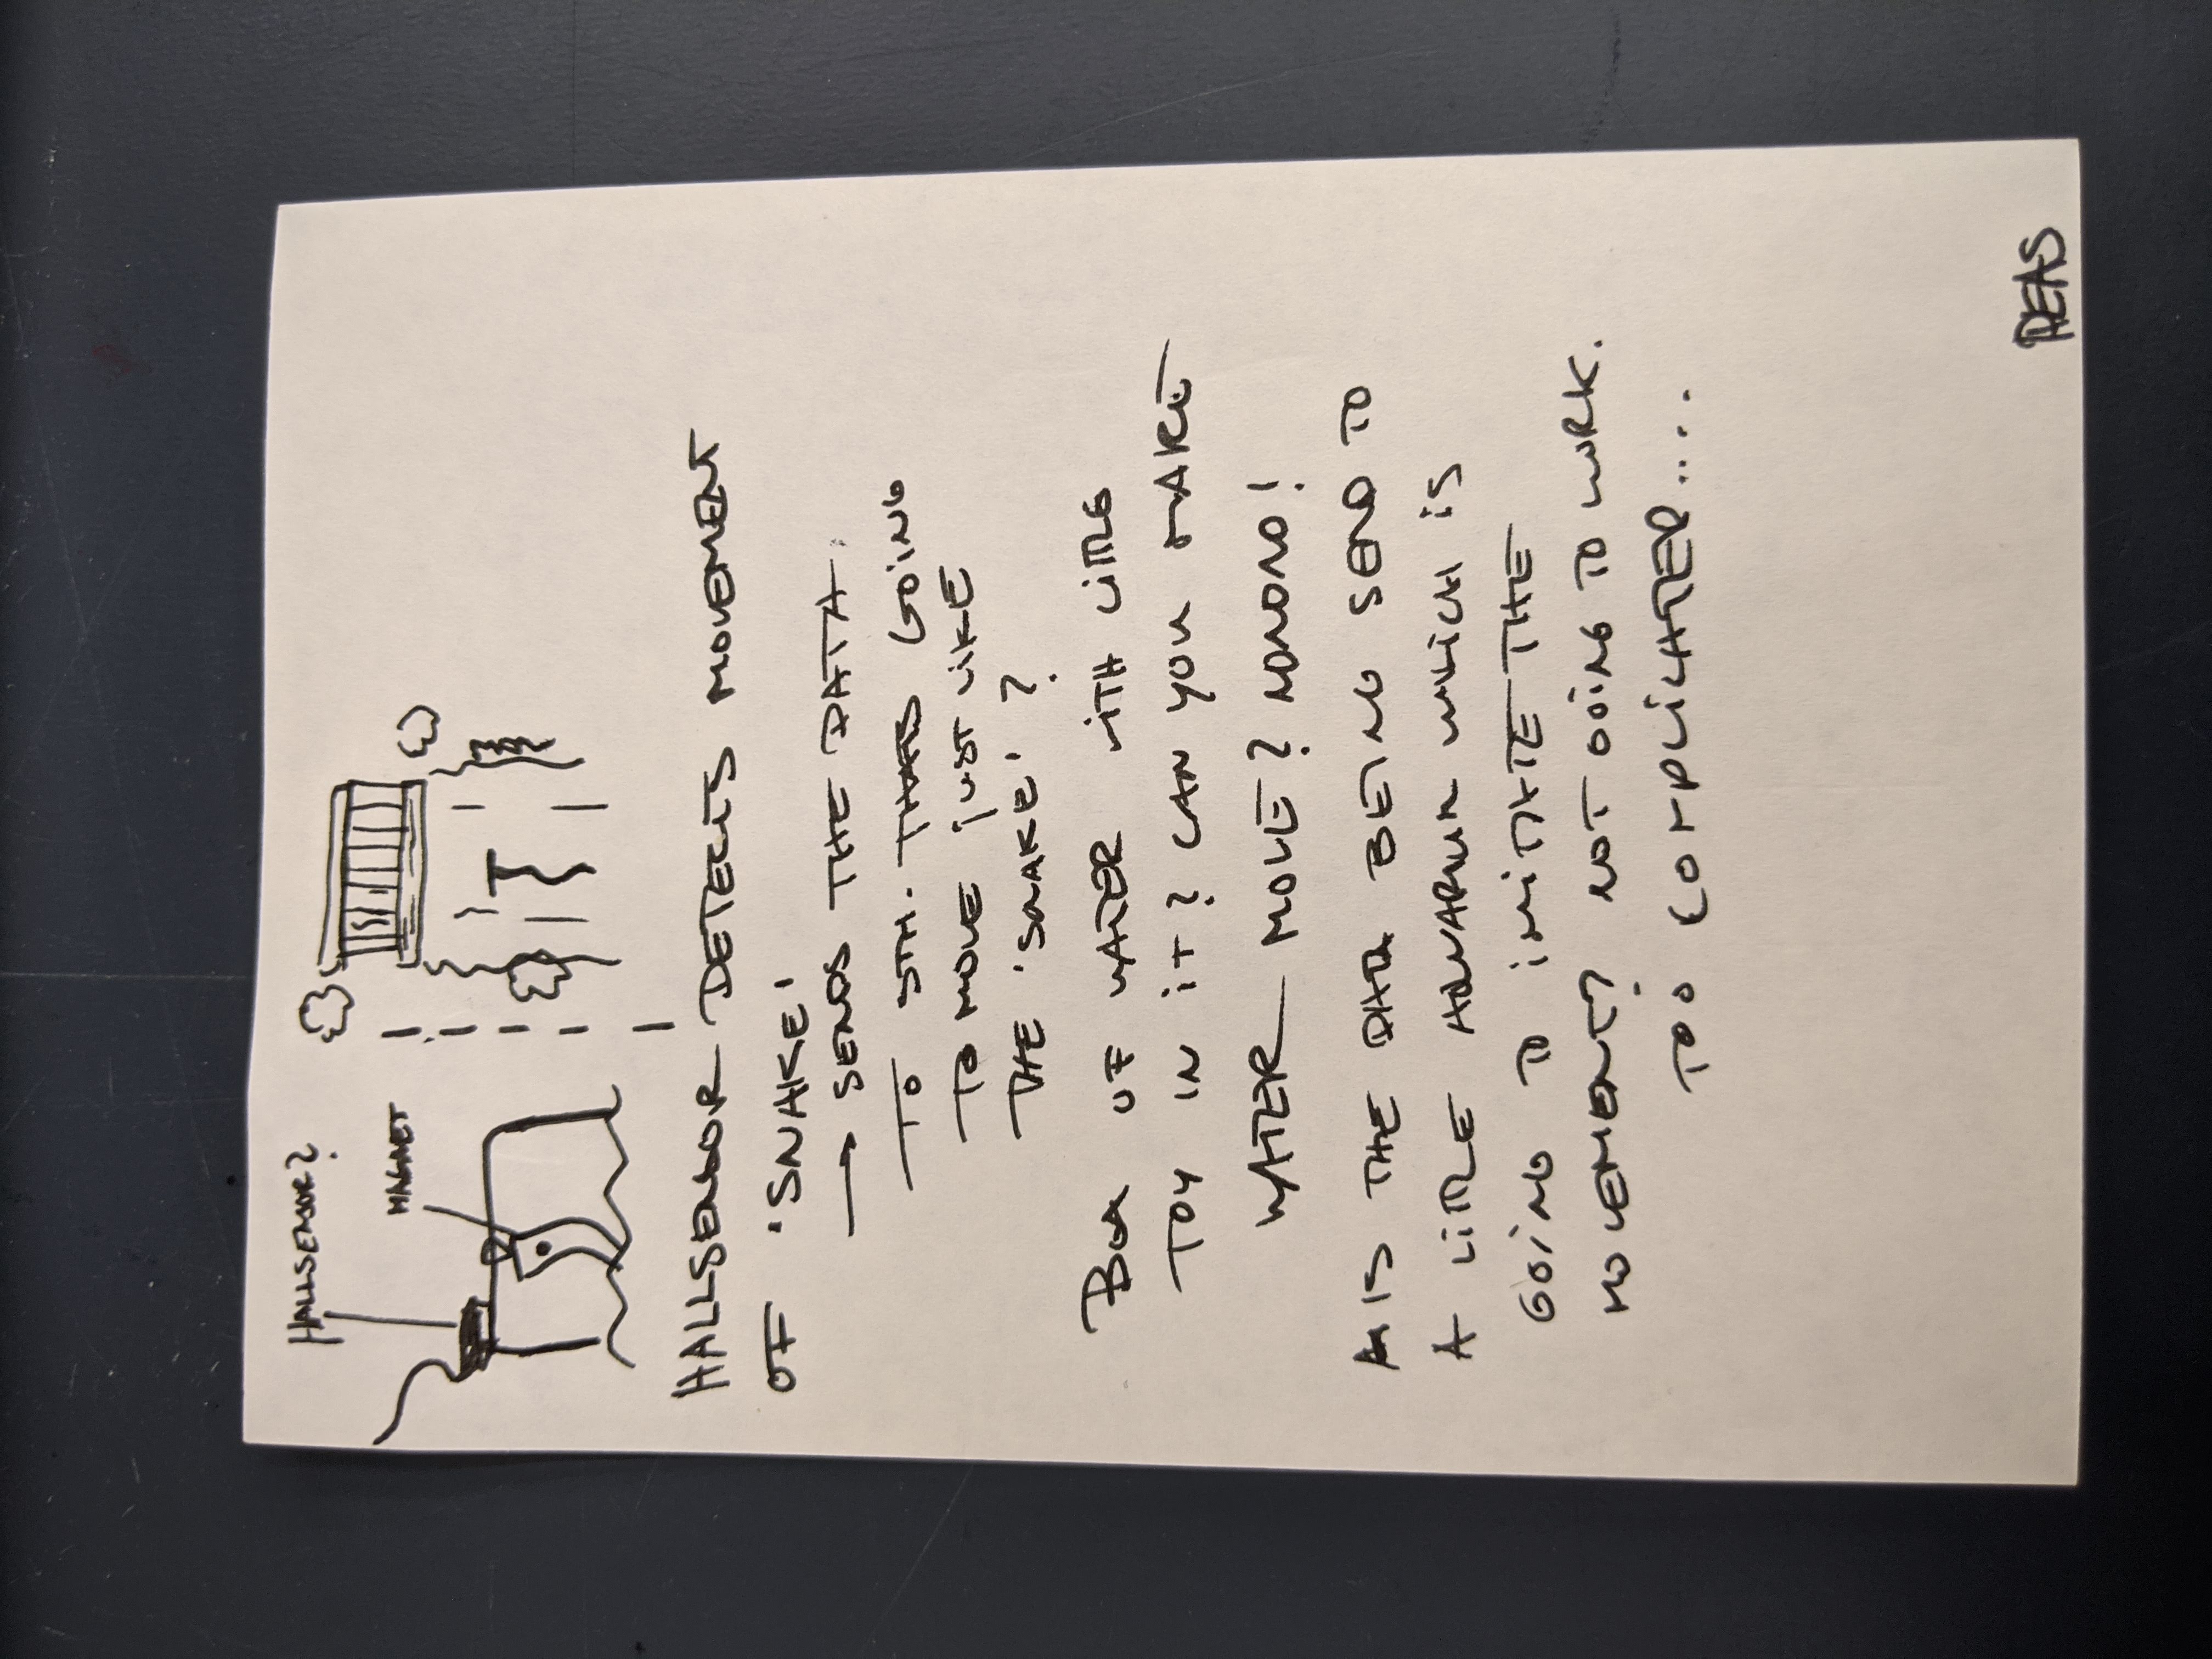 HALLSENSOR?
MAGNET
HALLSENSOR DETECTS MOVEMENT
OF 'SNAKE'
→ SENDS THE DATA
TO STH. THATS GOING
TO MOVE JUST LIKE
THE 'SNAKE' ?
BOX OF WATER WITH LITTLE
TOY IN IT? CAN YOU MAKE
WATER MOVE? NONONO!
IS THE DATA BEING SEND TO
A LITTLE AQUARIUM WHICH IS
GOING TO IMITATE THE
MOVEMENT? NOT GOING TO WORK.
TOO COMPLICATED.....
IDEAS